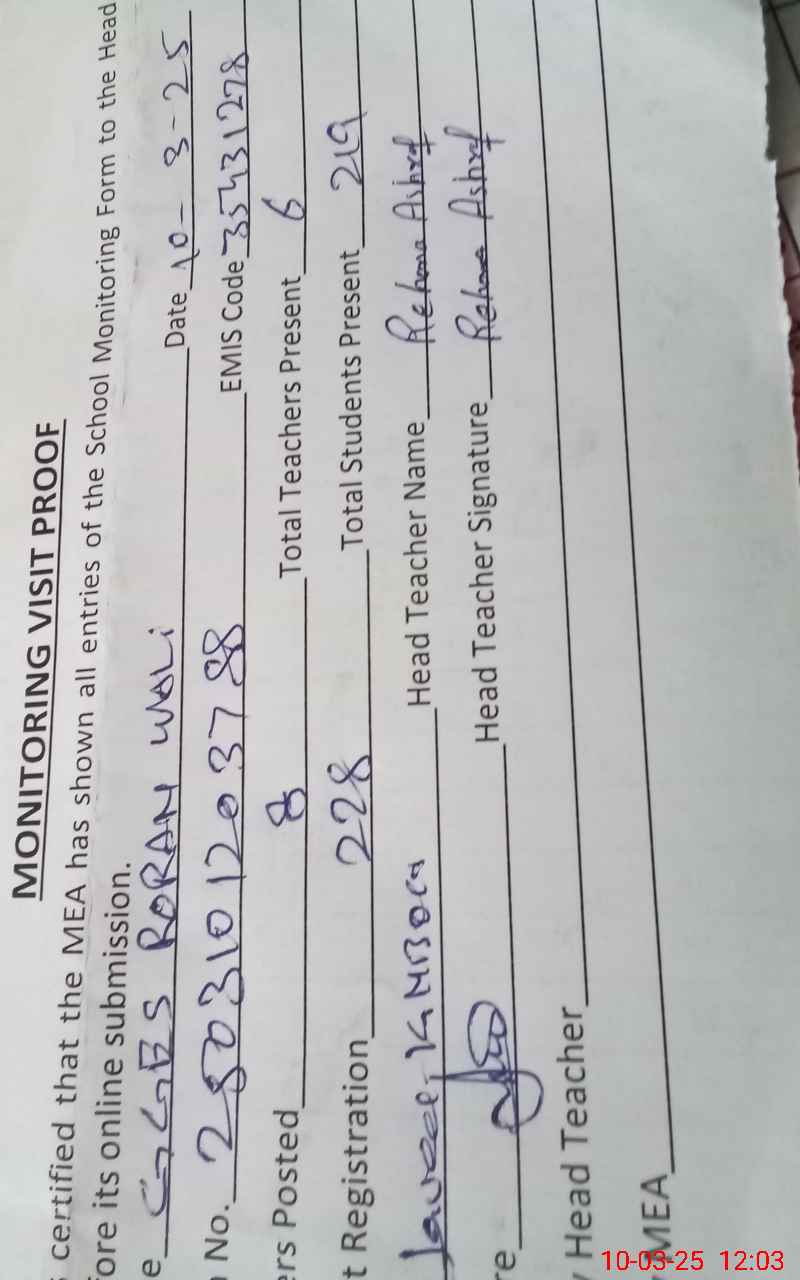 MONITORING VISIT PROOF
certified that the MEA has shown all entries of the School Monitoring Form to the Head
fore its online submission.
e GGES RORAN WALI Date 10-3-25
No. 2803101203788 EMIS Code 35431278
ers Posted 8 Total Teachers Present 6
t Registration 228 Total Students Present 219
Head Teacher Name Rehana Ashraf
re Head Teacher Signature Rehana Ashraf
Head Teacher
MEA
10-03-25 12:03